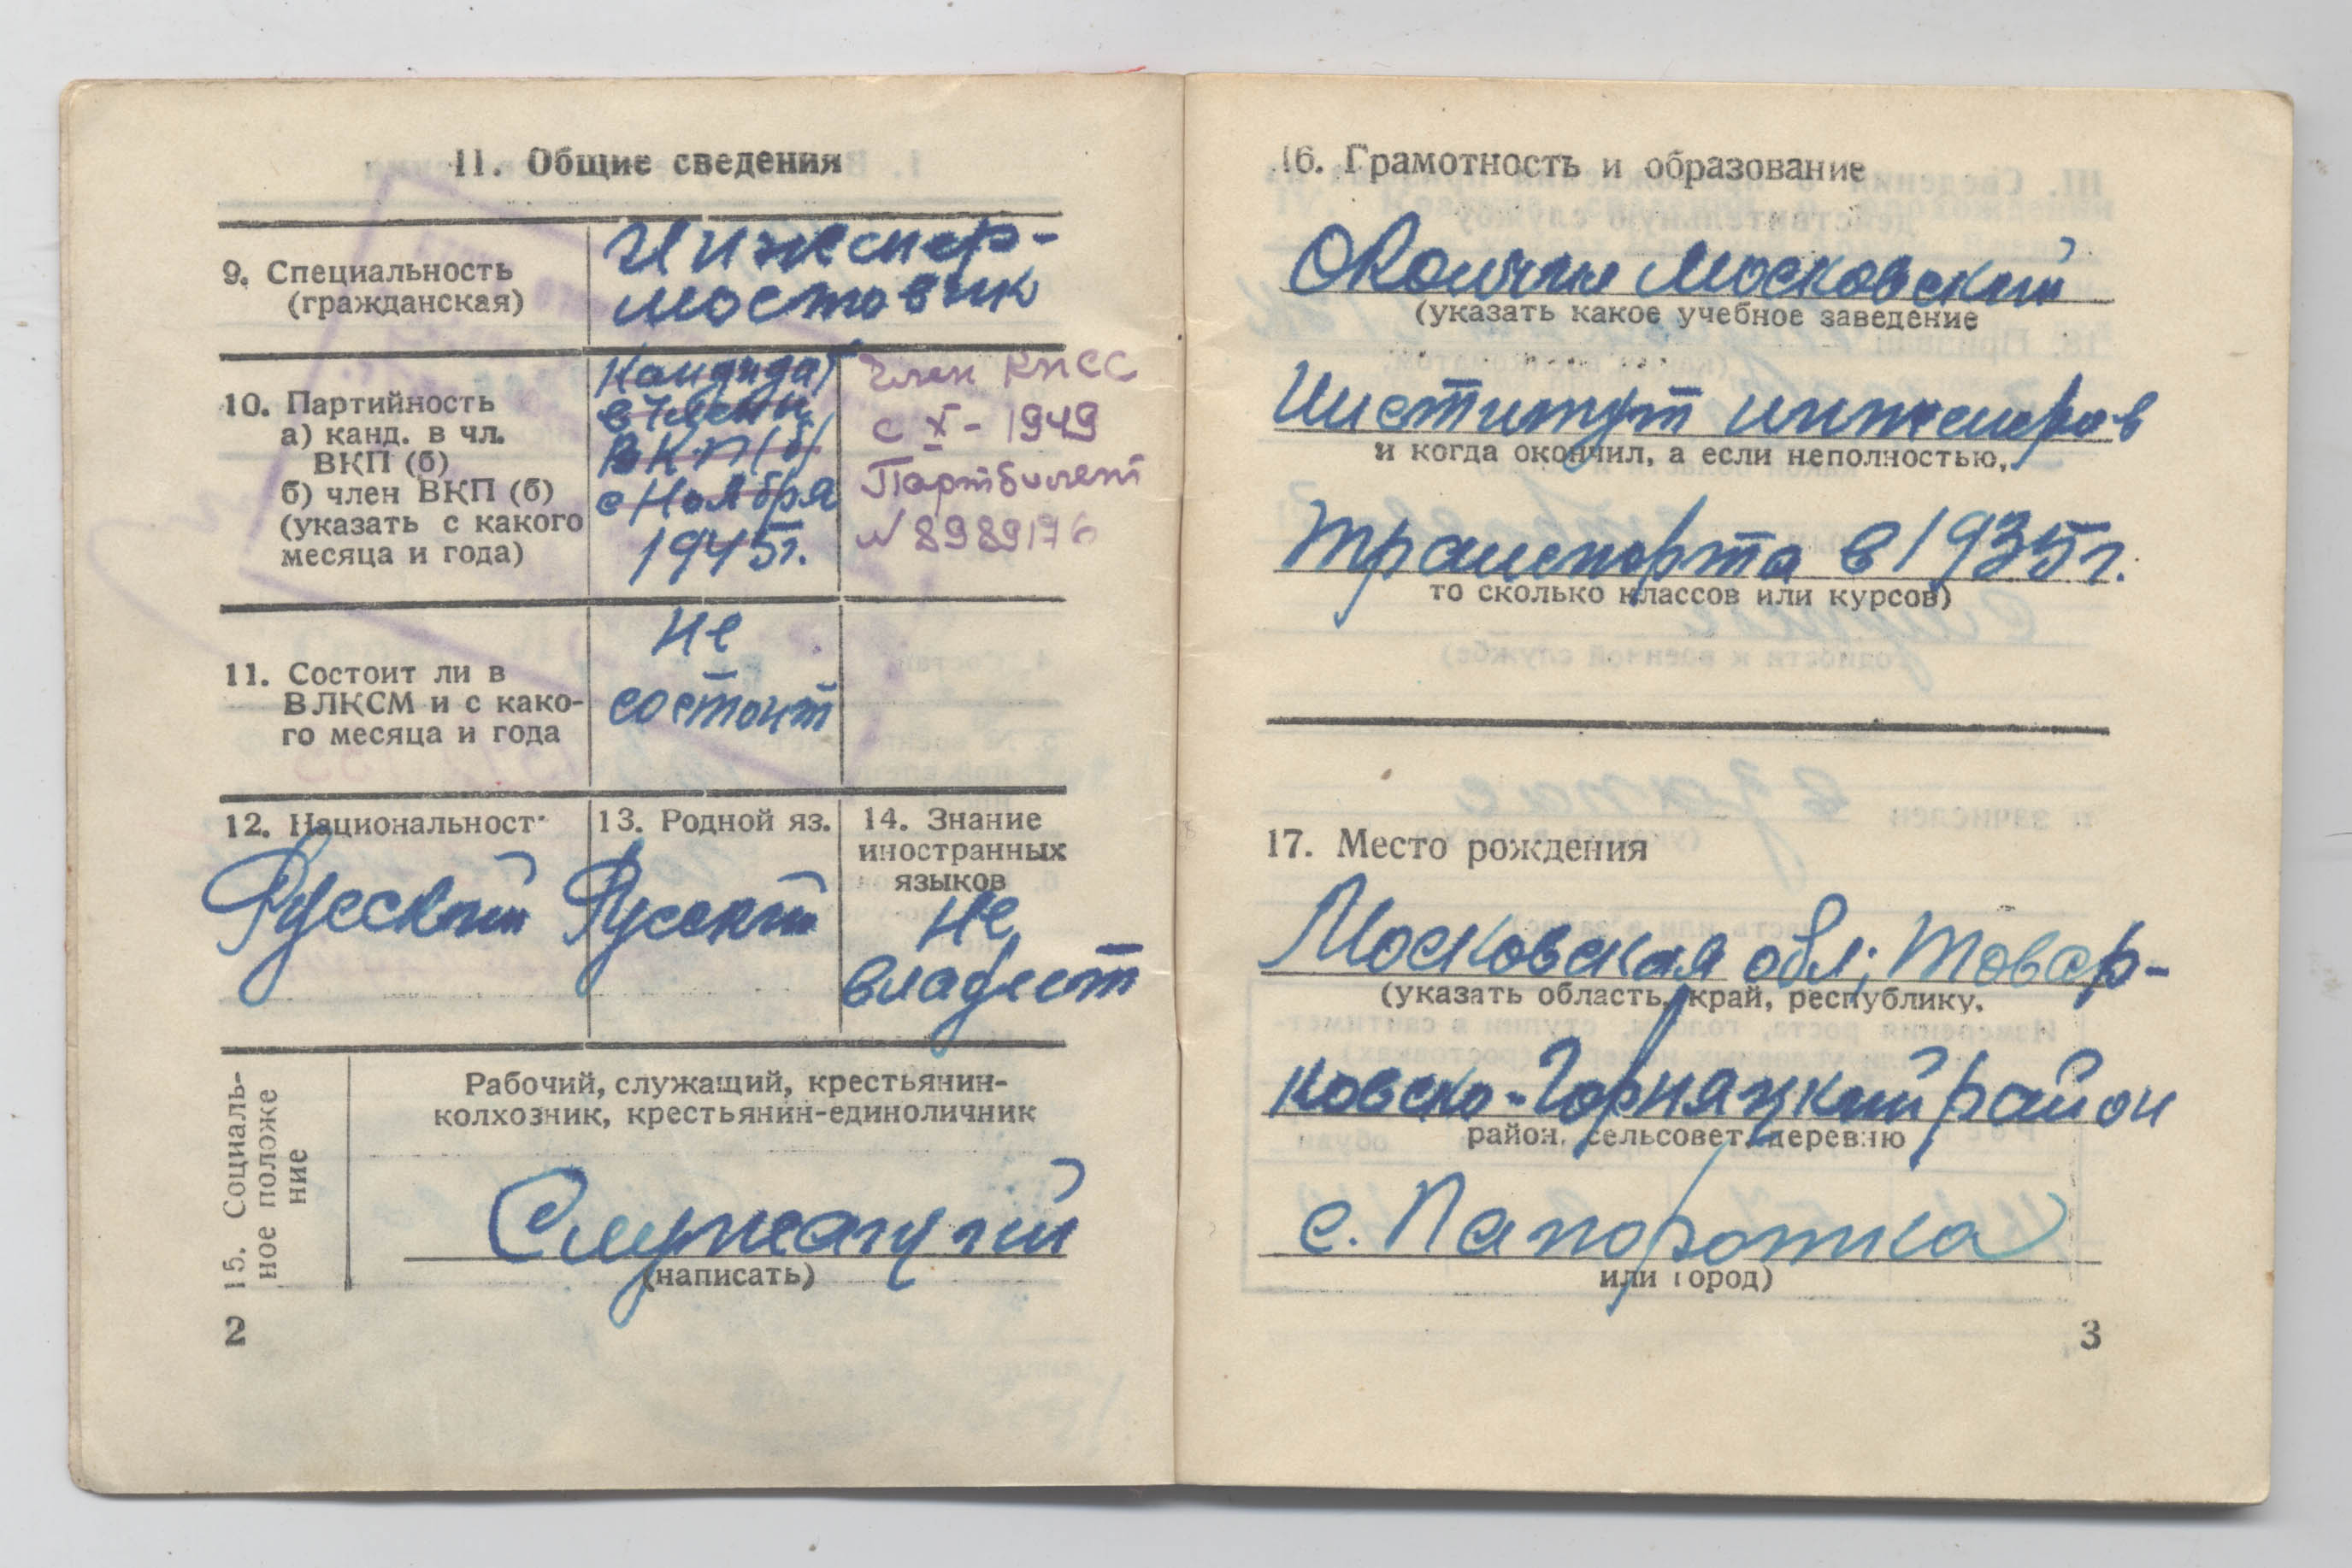 11. Общие сведения
9. Специальность
(гражданская)
Инженер-
мостовик
10. Партийность
а) канд. в чл.
ВКП (б)
б) член ВКП (б)
(указать с какого
месяца и года)
Кандидат
в члены
ВКП(б)
с Ноября
1945г.
Член КПСС
с X - 1949
Партбилет
N 8989176
11. Состоит ли в
ВЛКСМ и с како-
го месяца и года
Не
состоит
12. Национальност
Русский
13. Родной яз.
Русский
14. Знание
иностранных
языков
Не
владеет
15. Социаль-
ное положе
ние
Рабочий, служащий, крестьянин-
колхозник, крестьянин-единоличник
Служащий
(написать)
2
16. Грамотность и образование
Окончил Московский
(указать какое учебное заведение
Институт инженеров
и когда окончил, а если неполностью,
транспорта в 1935г.
то сколько классов или курсов)
17. Место рождения
Московская обл; Товар-
(указать область, край, республику,
ковско-Горняцкий район
район, сельсовет, деревню
с. Папоротка
или город)
3